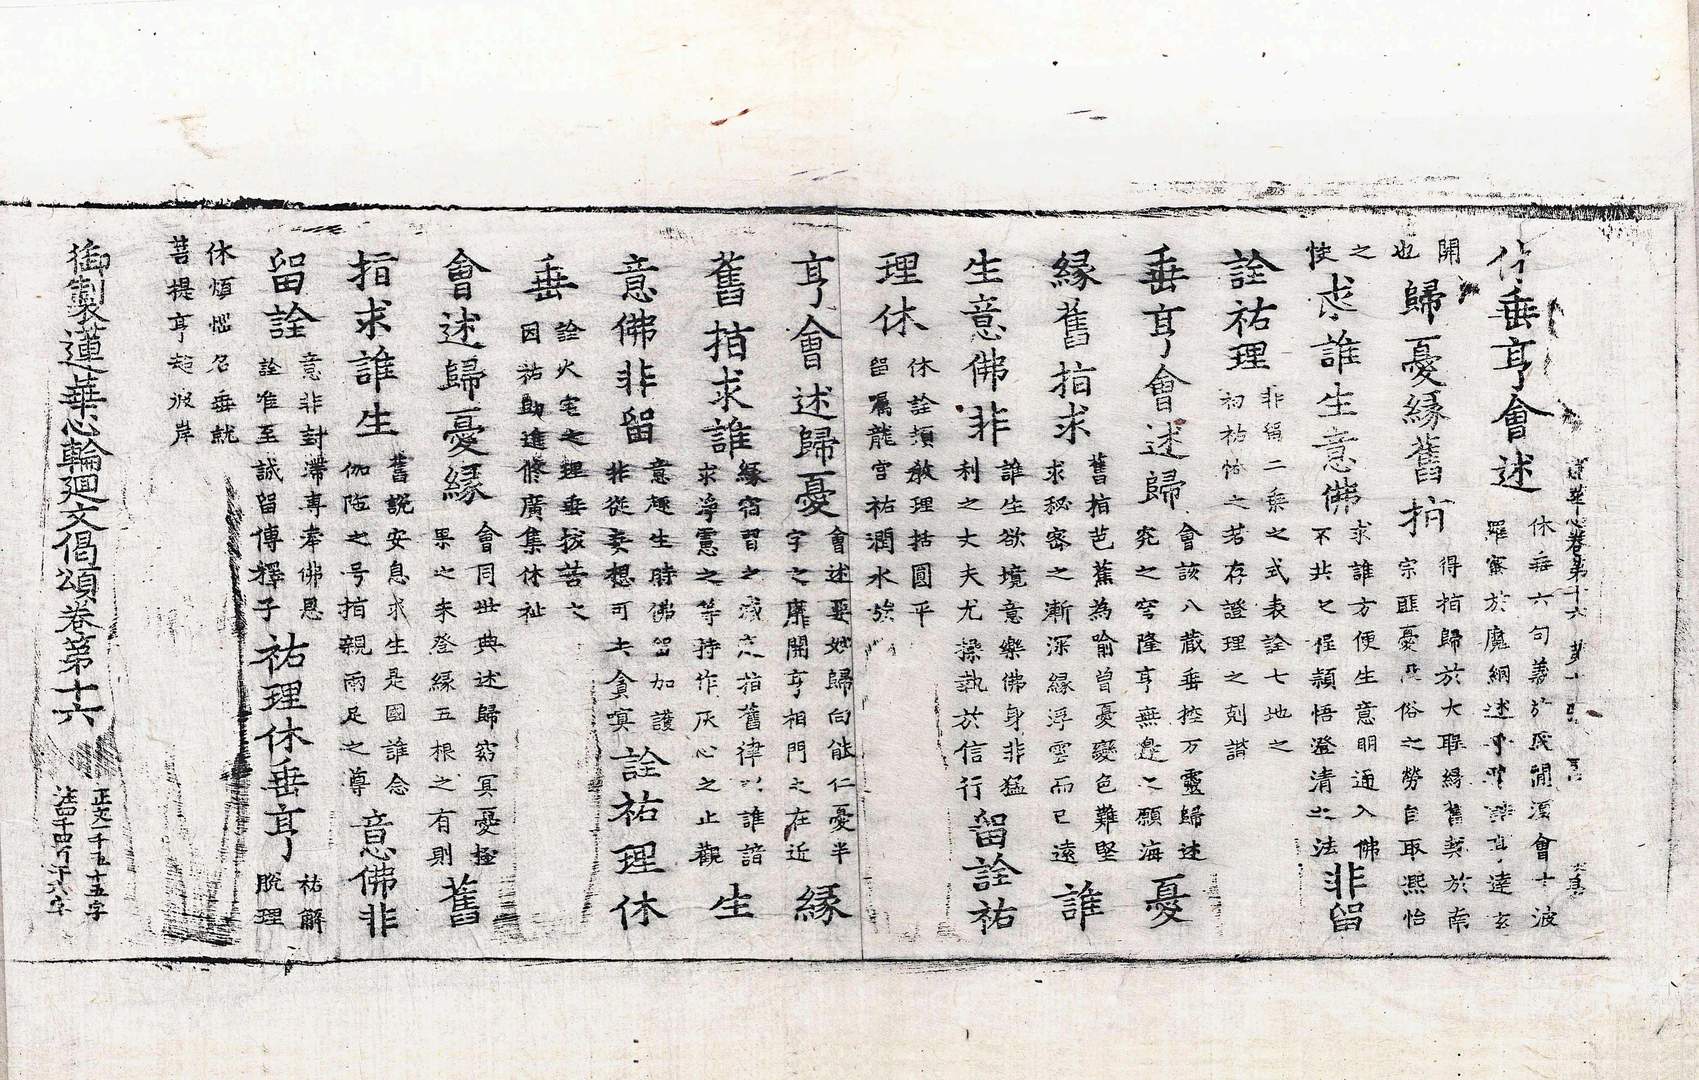 蓮華心卷第十六
垂亨會述
休垂六句義於 開演會十波
羅蜜於魔網述 亨達玄
開
也
歸憂緣舊指
得指歸於大 緣舊契於南
宗匪憂 俗之勞自取凞怡
之
使
求誰生意佛
求誰方便生意明通入佛
不共之程頴悟澄清之法
非留
詮祐理
非稱二乘之式表詮七地之
初祐恰之若存證理之剋諧
垂亨會述歸
會該八藏垂控万靈歸述
究之穹隆亨無邊之願海
憂
緣舊指求
舊指芭蕉為喻曾憂變色難堅
求秘密之漸深緣浮雲而已遠
誰
生意佛非
誰生欲境意樂佛身非猛
利之大夫尤操執於信行
留詮祐
理休
休詮頌教理括圓平
留屬龍宮祐潤水族
亨會述歸憂
會述要妙歸向能仁憂半
字之靡開亨相門之在近
緣
舊指求誰
緣宿習之 指舊律以誰諳
求淨憲之等持作灰心之止觀
生
意佛非留
意趣生時佛留加護
非從妄想可去貪嗔
詮祐理休
垂
詮火宅之理垂拔苦之
因祐助進修廣集休祉
會述歸憂緣
會同世典述歸窈冥憂極
果之未登緣五根之有則
舊
指求誰生
舊說安息求生是國誰念
伽陁之号指親兩足之尊
意佛非
留詮
意非封滯專奉佛恩
詮准至誠留傳釋子
祐理休垂亨
祐解
脫理
休煩惱名垂就
菩提亨超彼岸
御製蓮華心輪迴文偈頌卷第十六
正文一千五十五字